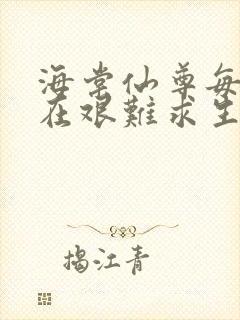 海棠仙尊每
在艰難求生
揭江青